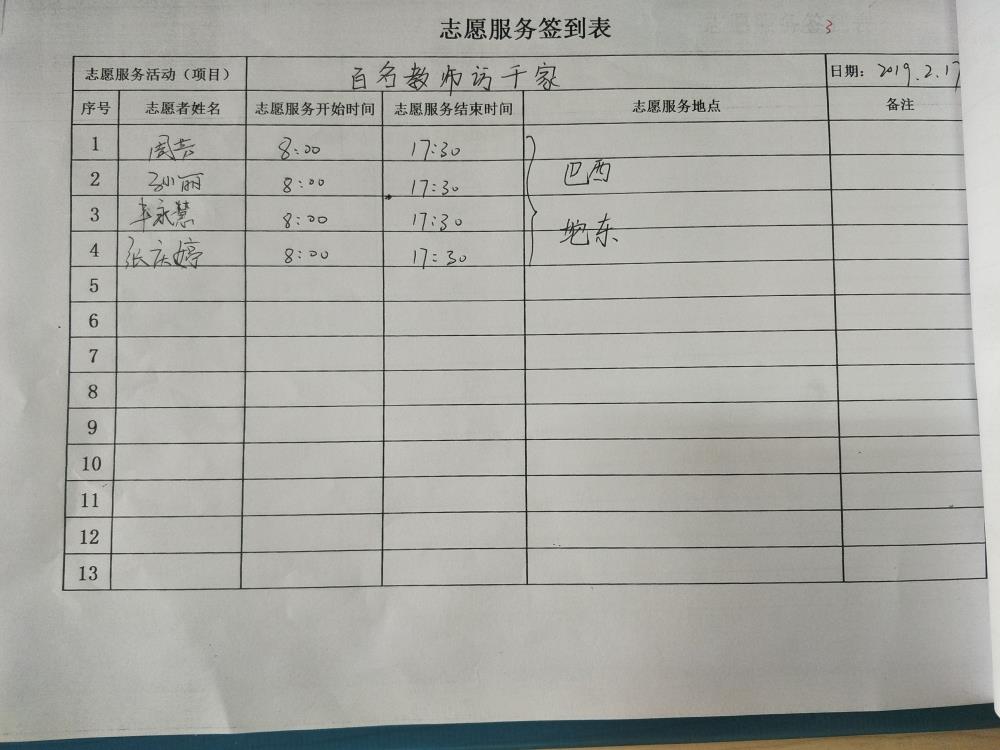 志愿服务签到表
3
志愿服务活动（项目） 百名教师访千家 日期：2019.2.17
序号 志愿者姓名 志愿服务开始时间 志愿服务结束时间 志愿服务地点 备注
1 8:00 17:30
2 孙丽 8:00 17:30 巴西
3 永慧 8:00 17:30 东
4 张庆婷 8:00 17:30
5
6
7
8
9
10
11
12
13